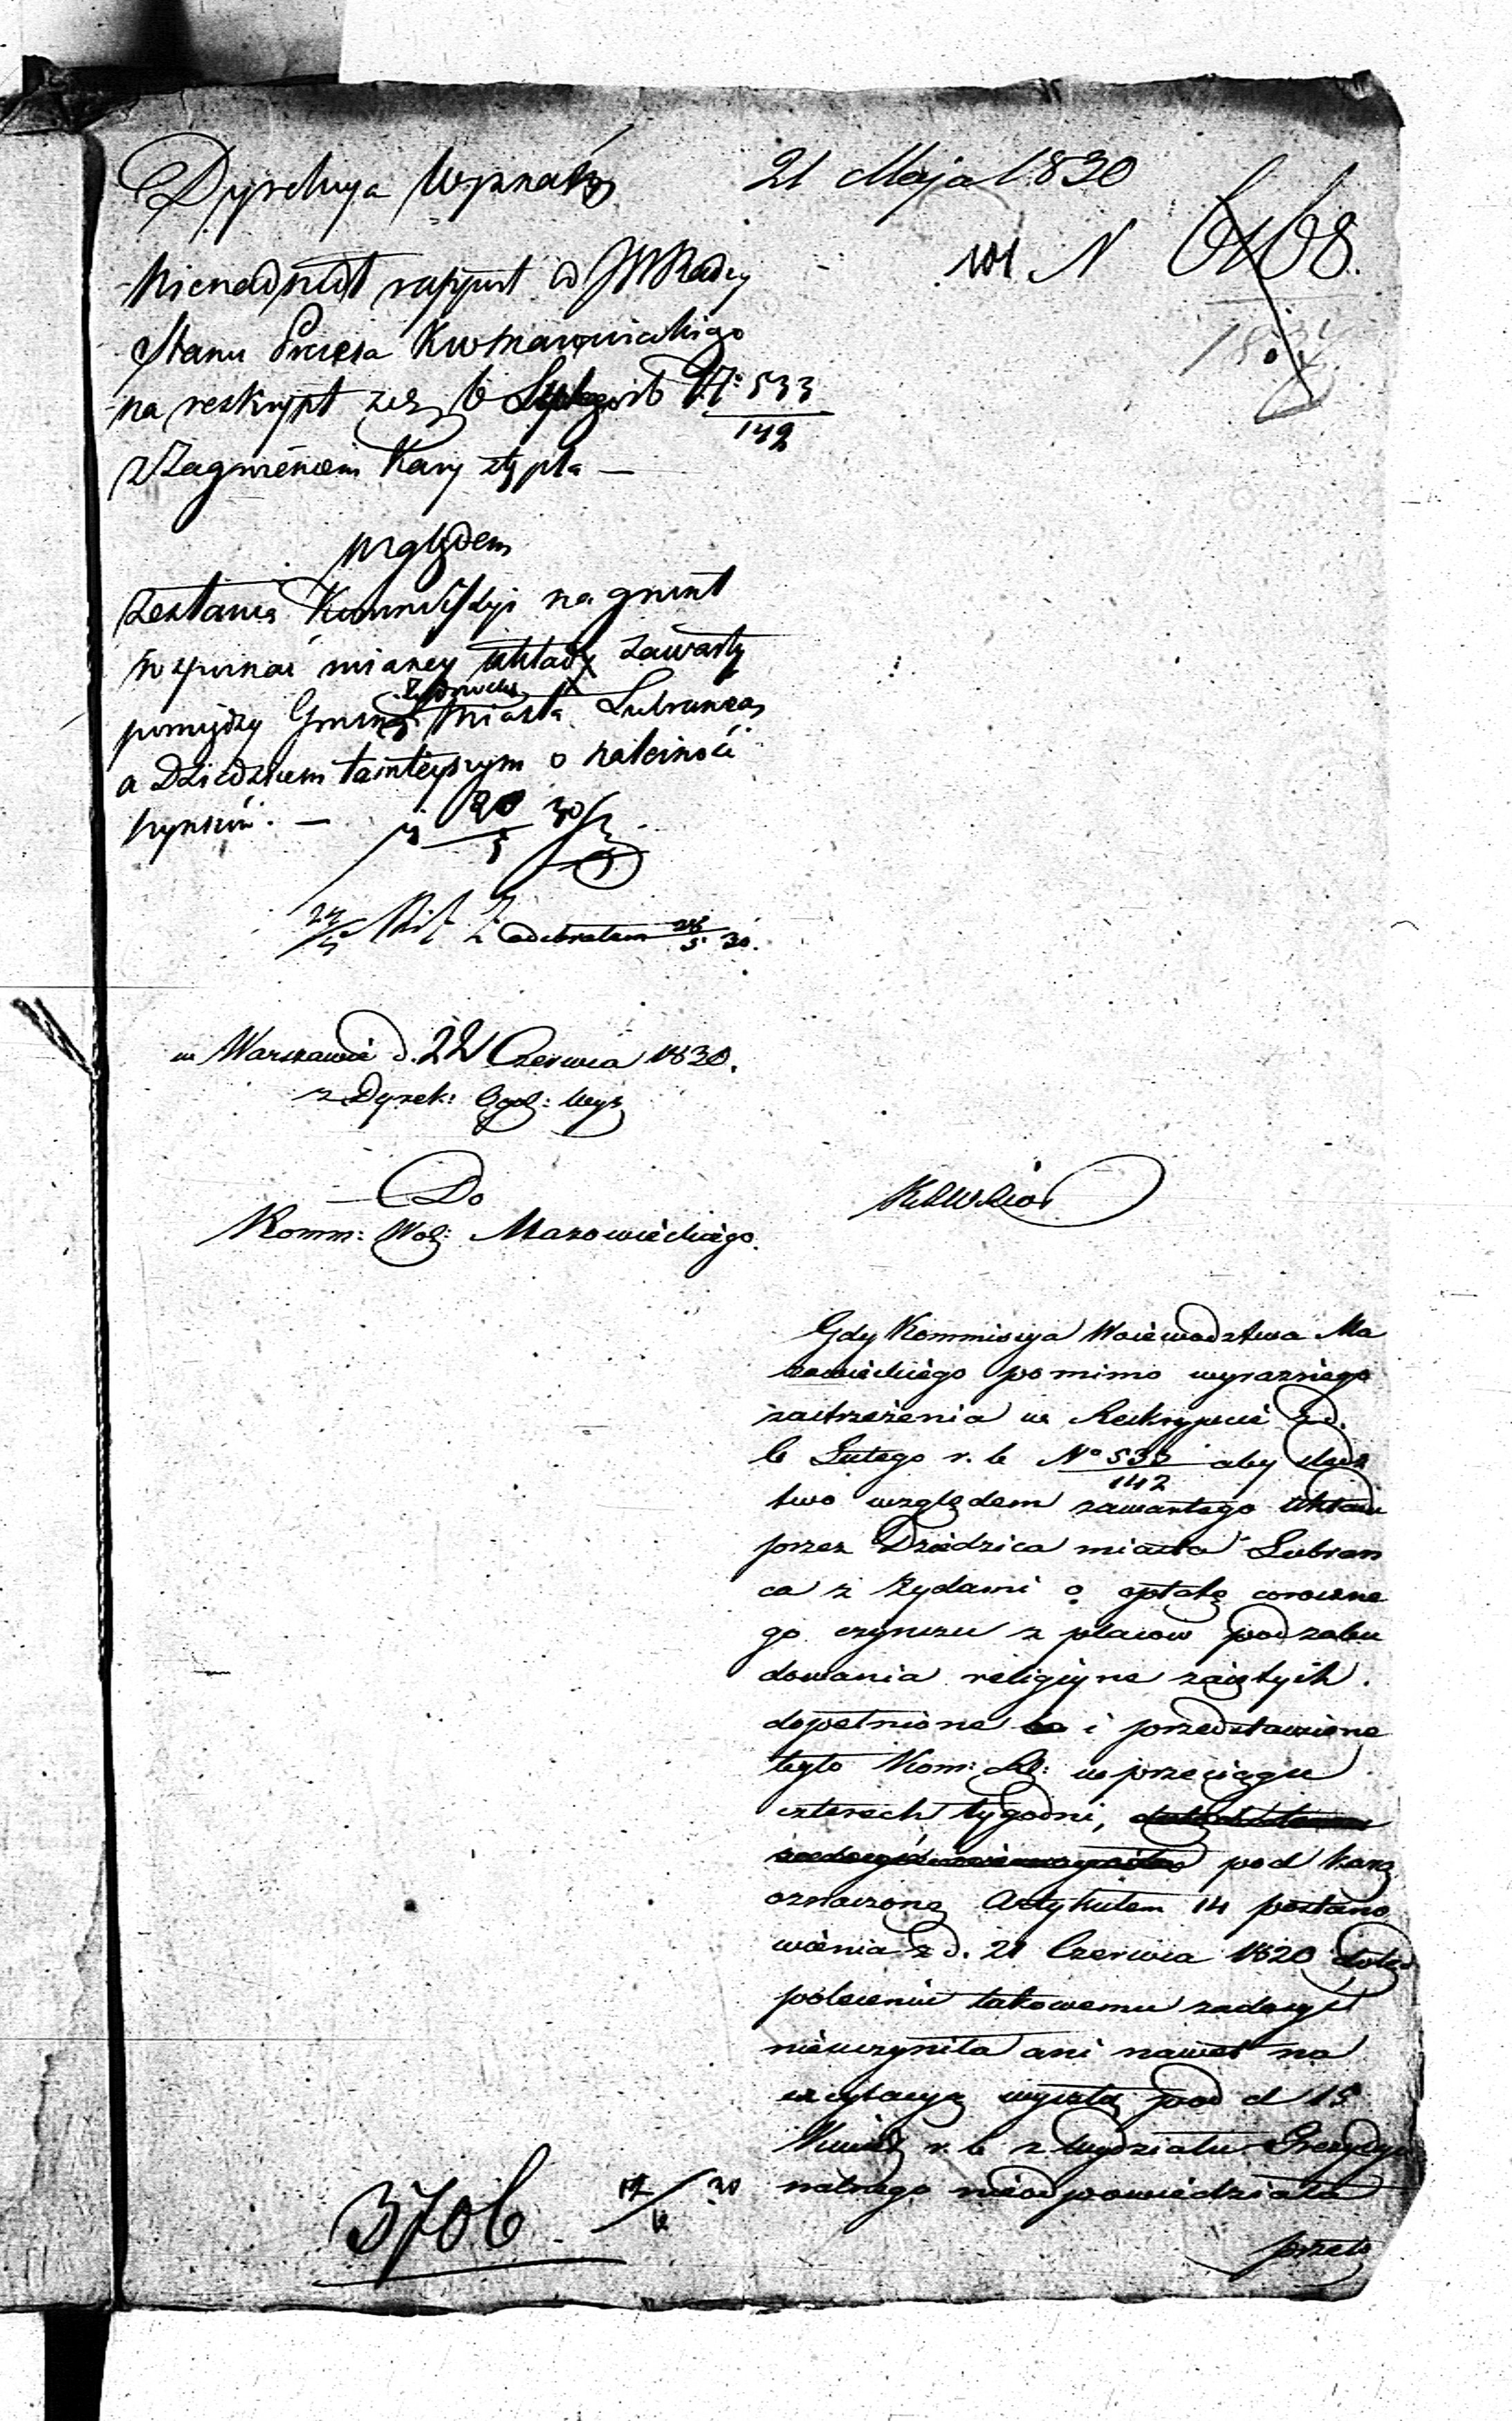 Dyrekcya Wyznań
21 Maja 1830
101 N 6168.
Nienadszedł rapport od JW Radcy
Stanu Prezesa
na reskrypt z d. 6 Lutego r b N° 533/142
z zagrożeniem Kary
względem
zesłania Kommissyi na grunt
rozpoznać mianey układ zawarty
pomiędzy Gminą Żydowską miasta Lubrańca
a Dziedzicem tamteyszym o należność
czynszu. —
20/5 30
24/5 odebrałem 28/5 30.
w Warszawie d. 22 Czerwca 1830.
z Dyrek: Ogól: Wyz
Do
Komm: Woj: Mazowieckiego.
Gdy Kommissya Woiewodztwa Ma
zowieckiego pomimo wyraznego
zastrzeżenia w Reskrypcie z d.
6 Lutego r. b N° 533/142 aby śledz
two względem zawartego układu
przez Dziedzica miasta Lubran
ca z Żydami o opłatę coroczne
go czynszu z placow pod zabu
dowania religiyne zaiętych.
dopełnione i przedstawione
było Kom: Rz: w przeciągu
czterech tygodni,
pod karą
oznaczoną Artykułem 14 postano
wienia z d. 21 Czerwca 1820 dotąd
poleceniu takowemu zadosyć
nieuczyniła ani nawet na
excytacyą wyszłą pod d 15
Kwiet r. b z Wydziału Prezydy
alnego nieodpowiedziała
przeto
3706 17/6 30